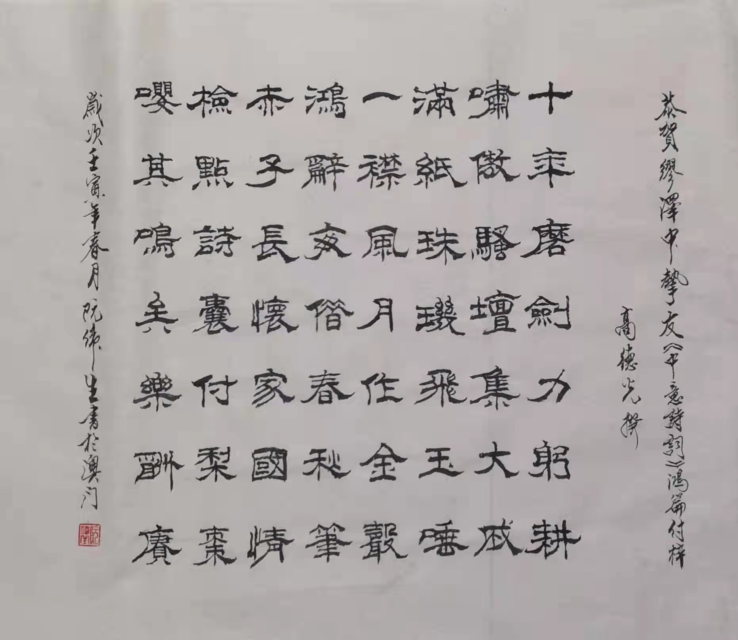 恭賀繆澤中摯友《中意詩詞》鴻篇付梓
高德光撰
十年磨劍力躬耕
嘯傲騷壇集大成
滿紙珠璣飛玉唾
一襟風月作金聲
鴻辭偕春秋筆
赤子長懷家國情
檢點詩囊付梨棗
嚶其鳴矣樂酬賡
歲次壬寅年春月阮偉生書於澳門